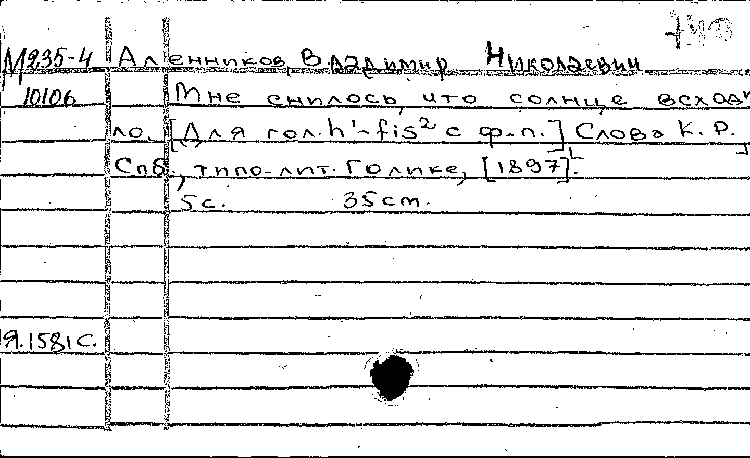 М235-4 Аленников, Владимир Николаевич
10106 Мне снилось, что солнце всходи
ло. [Для гол. h¹-fis² с ф.-п.] Слова К. Р.
Спб., типо-лит. Голике, [1897].
5 с. 35 cm.
Я.1581 С.